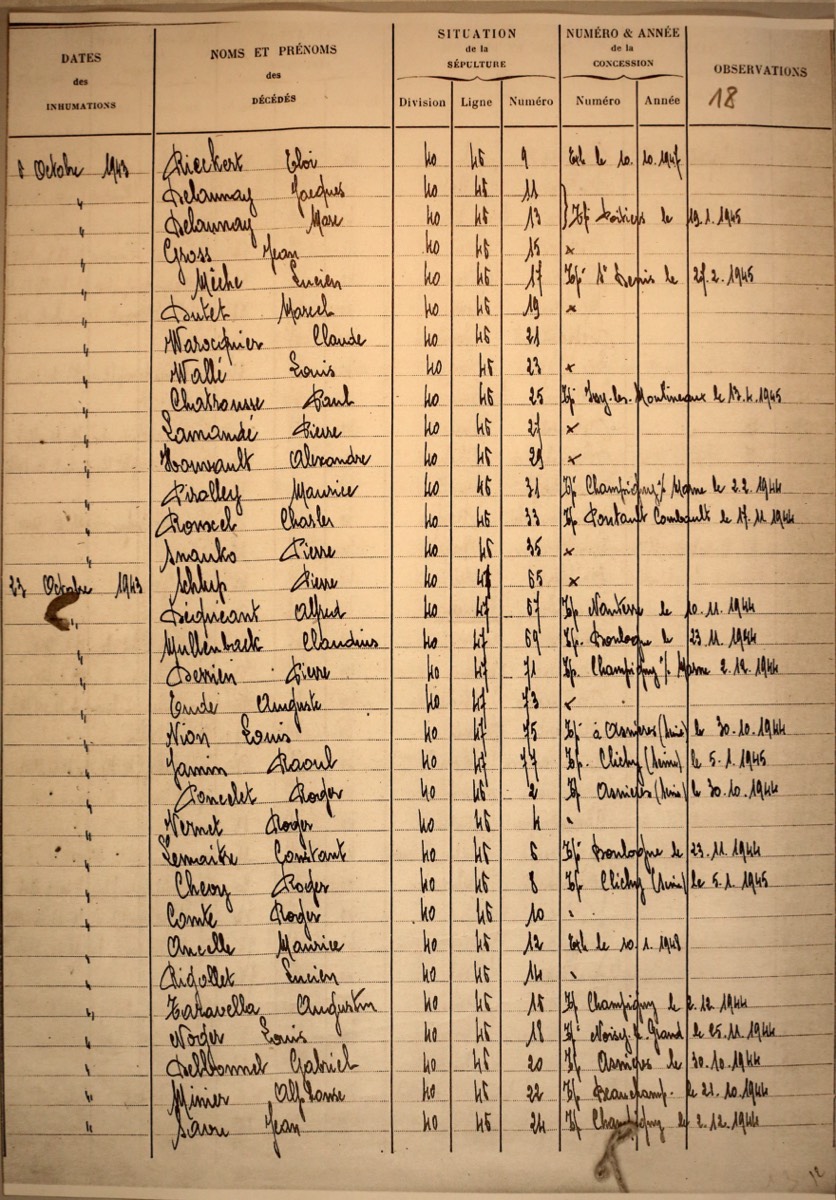 DATES des INHUMATIONS
NOMS ET PRÉNOMS des DÉCÉDÉS
SITUATION de la SÉPULTURE
NUMÉRO & ANNÉE de la CONCESSION
OBSERVATIONS
Division Ligne Numéro Numéro Année
18
Octobre 1943 Rieckert Eloi 40 46 9 Exh le 10.10.1947
" Delaunay Jacques 40 46 11
" Delaunay Marc 40 46 13 } Tf Poitiers le 19.1.1945
" Gross Jean 40 46 15 x
" Mèche Lucien 40 46 17 Tf St Denis le 27.2.1945
" Dutet Marcel 40 46 19 x
" Warocquier Claude 40 46 21
" Wallé Louis 40 46 23 x
" Chatrousse Paul 40 46 25 Tf Issy-les-Moulineaux le 13.4.1945
" Lamandé Pierre 40 46 27 x
" Alexandre 40 46 29 x
" Piralley Maurice 40 46 31 Tf Champigny s/ Marne le 2.2.1944
" Charles 40 46 33 Tf Pontault Combault le 17.11.1944
" Pierre 40 46 35 x
23 Octobre 1943 Schlup Pierre 40 47 65 x
" Déquéant Alfred 40 47 67 Tf Nanterre le 10.11.1944
" Mullenback Claudius 40 47 69 Tf. Boulogne le 23.11.1944
" Derrien Pierre 40 47 71 Tf. Champigny s/ Marne 2.12.1944
" Eude Auguste 40 47 73 x
" Nion Louis 40 47 75 Tf à Asnières (Seine) le 30.10.1944
" Jamin Raoul 40 47 77 Tf. Clichy (Seine) le 5.1.1945
" Poncelet Roger 40 46 2 Tf Asnières (Seine) le 30.10.1944
" Vernet Roger 40 46 4
" Lemaitre Constant 40 46 6 Tf Boulogne le 23.11.1944
" Chevy Roger 40 46 8 Tf Clichy (Seine) le 5.1.1945
" Comte Roger 40 46 10
" Ancelle Maurice 40 46 12 Exh le 10.1.1948
" Rigollet Lucien 40 46 14
" Taravella Augustin 40 46 16 Tf Champigny le 2.12.1944
" Noger Louis 40 46 18 Tf Noisy-le-Grand le 25.11.1944
" Delbonnel Gabriel 40 46 20 Tf Asnières le 30.10.1944
" Minier Alphonse 40 46 22 Tf Beauchamp. le 21.10.1944
" Savre Jean 40 46 24 Tf Champigny le 2.12.1944